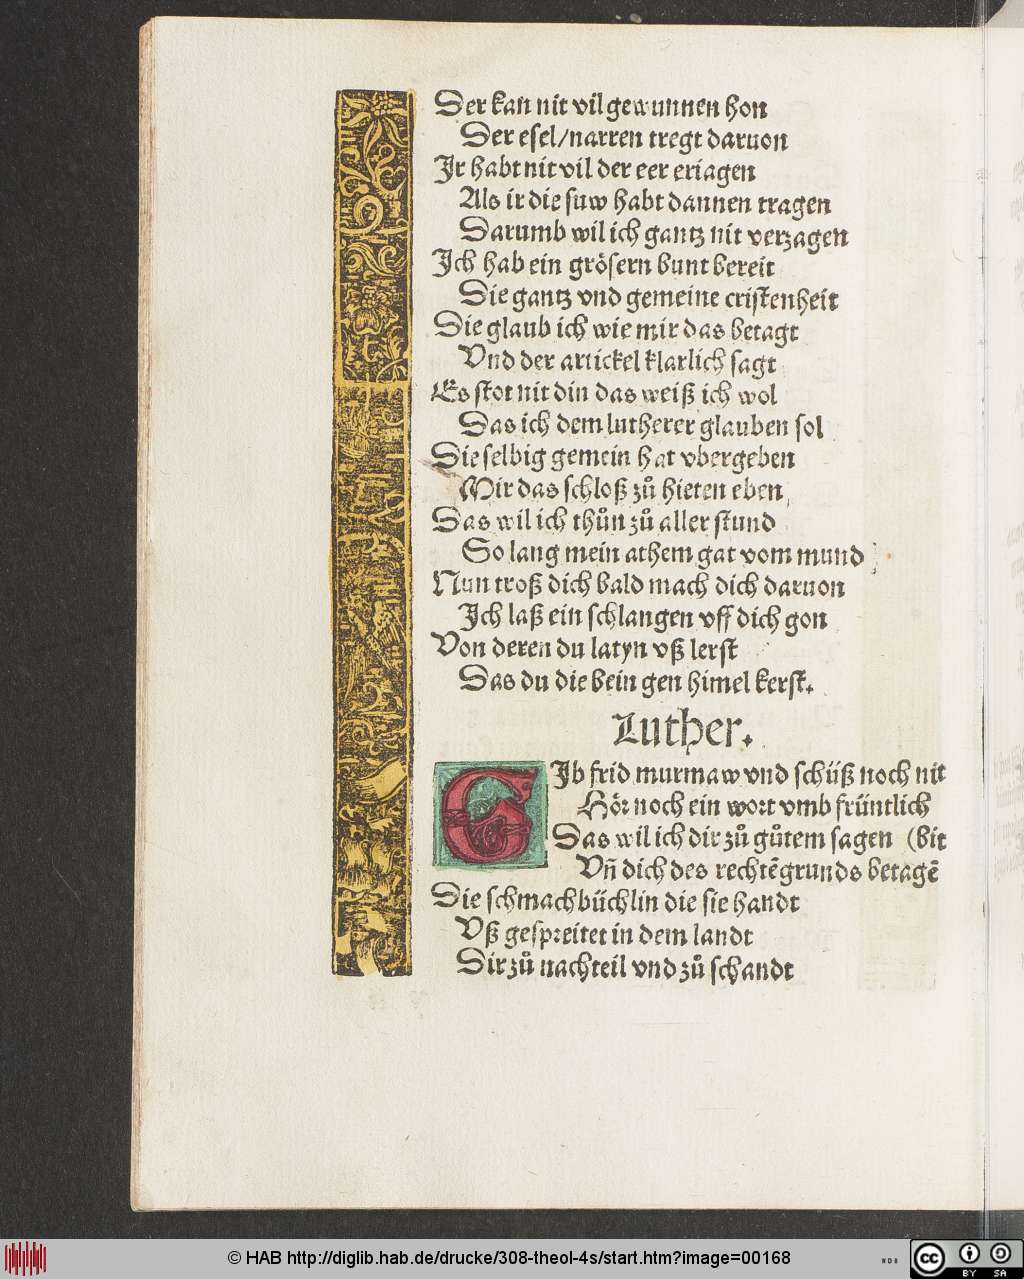 Der kan nit vil gewunnen hon
Der esel/narren tregt daruon
Jr habt nit vil der eer eriagen
Als ir die suw habt dannen tragen
Darumb wil ich gantz nit verzagen
Jch hab ein grösern bunt bereit
Die gantz vnd gemeine cristenheit
Die glaub ich wie mir das betagt
Vnd der artickel klarlich sagt
Es stot nit din das weiß ich wol
Das ich dem lutherer glauben sol
Die selbig gemein hat vbergeben
Mir das schloß zů hieten eben
Das wil ich thůn zů aller stund
So lang mein athem gat vom mund
Nun troß dich bald mach dich daruon
Jch laß ein schlangen vff dich gon
Von deren du latyn vß lerst
Das du die bein gen himel kerst.
Luther.
GJb frid murmaw vnd schüß noch nit
Hör noch ein wort vmb früntlich
Das wil ich dir zů gůtem sagen (bit
Vn̄ dich des rechtē grunds betagē
Die schmachbüchlin die sie handt
Vß gespreitet in dem landt
Dir zů nachteil vnd zů schandt
© HAB http://diglib.hab.de/drucke/308-theol-4s/start.htm?image=00168
WDB
cc BY SA